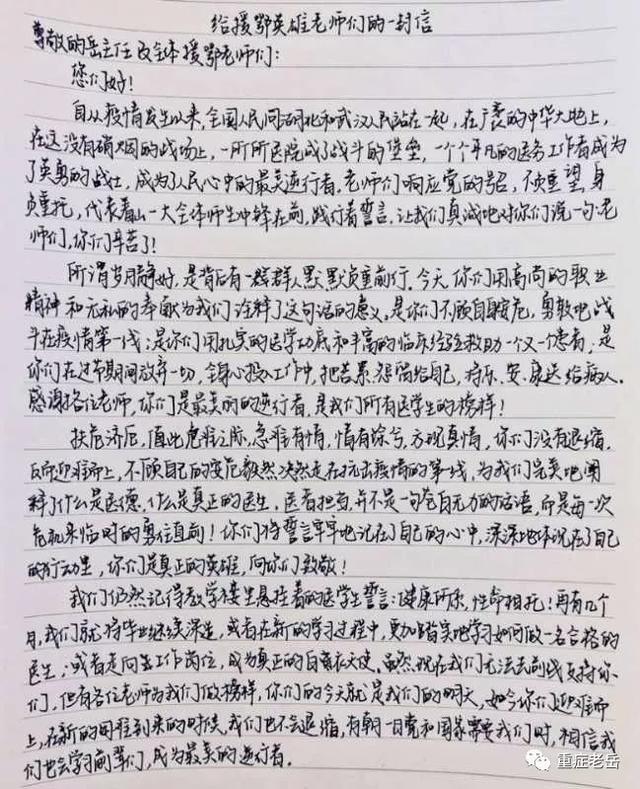 给援鄂英雄老师们的一封信
尊敬的岳主任及全体援鄂老师们:
您们好!
自从疫情发生以来,全国人民同湖北和武汉人民站在一起,在广袤的中华大地上,
在这没有硝烟的战场上,一所所医院成了战斗的堡垒,一个个平凡的医务工作者成为
了英勇的战士,成为了人民心中的最美逆行者,老师们响应党的号召,不负重望,身
负重托,代表着山一大全体师生冲锋在前,践行着誓言,让我们真诚地对你们说一句:老
师们,你们辛苦了!
所谓岁月静好,是背后有一群群人默默负重前行。今天,你们用高尚的职业
精神和无私的奉献为我们诠释了这句话的意义,是你们不顾自身安危,勇敢地战
斗在疫情第一线;是你们用扎实的医学功底和丰富的临床经验救助一个又一个患者;是
你们在过节期间放弃一切,全身心投入工作中,把苦、累、愁留给自己,将乐、安、康送给病人。
感谢各位老师,你们是最美的的逆行者,是我们所有医学生的榜样!
扶危济厄,值此危难之际,急难有情,情有踪兮,方现真情,你们没有退缩,
反而迎难而上,不顾自己的安危毅然决然走在抗击疫情的第一线,为我们完美地阐
释了什么是医德,什么是真正的医生,医者担当,并不是一句苍白无力的话语,而是每一次
危机来临时的勇往直前!你们将誓言牢牢地记在了自己的心中,深深地体现在了自己
的行动里,你们是真正的英雄,向你们致敬!
我们仍然记得教学楼里悬挂着的医学生誓言:健康所系,性命相托!再有几个
月,我们就将毕业继续深造,或者在新的学习过程中,更加踏实地学习如何做一名合格的
医生;或者走向工作岗位,成为真正的白衣天使。虽然现在我们无法去前线支持你
们,但有各位老师为我们做榜样,你们的今天就是我们的明天,如今你们迎难而
上,在新的困难到来的时候,我们也不会退缩,有朝一日党和国家需要我们时,相信我
们也会学习前辈们,成为最美的逆行者。
重症老岳